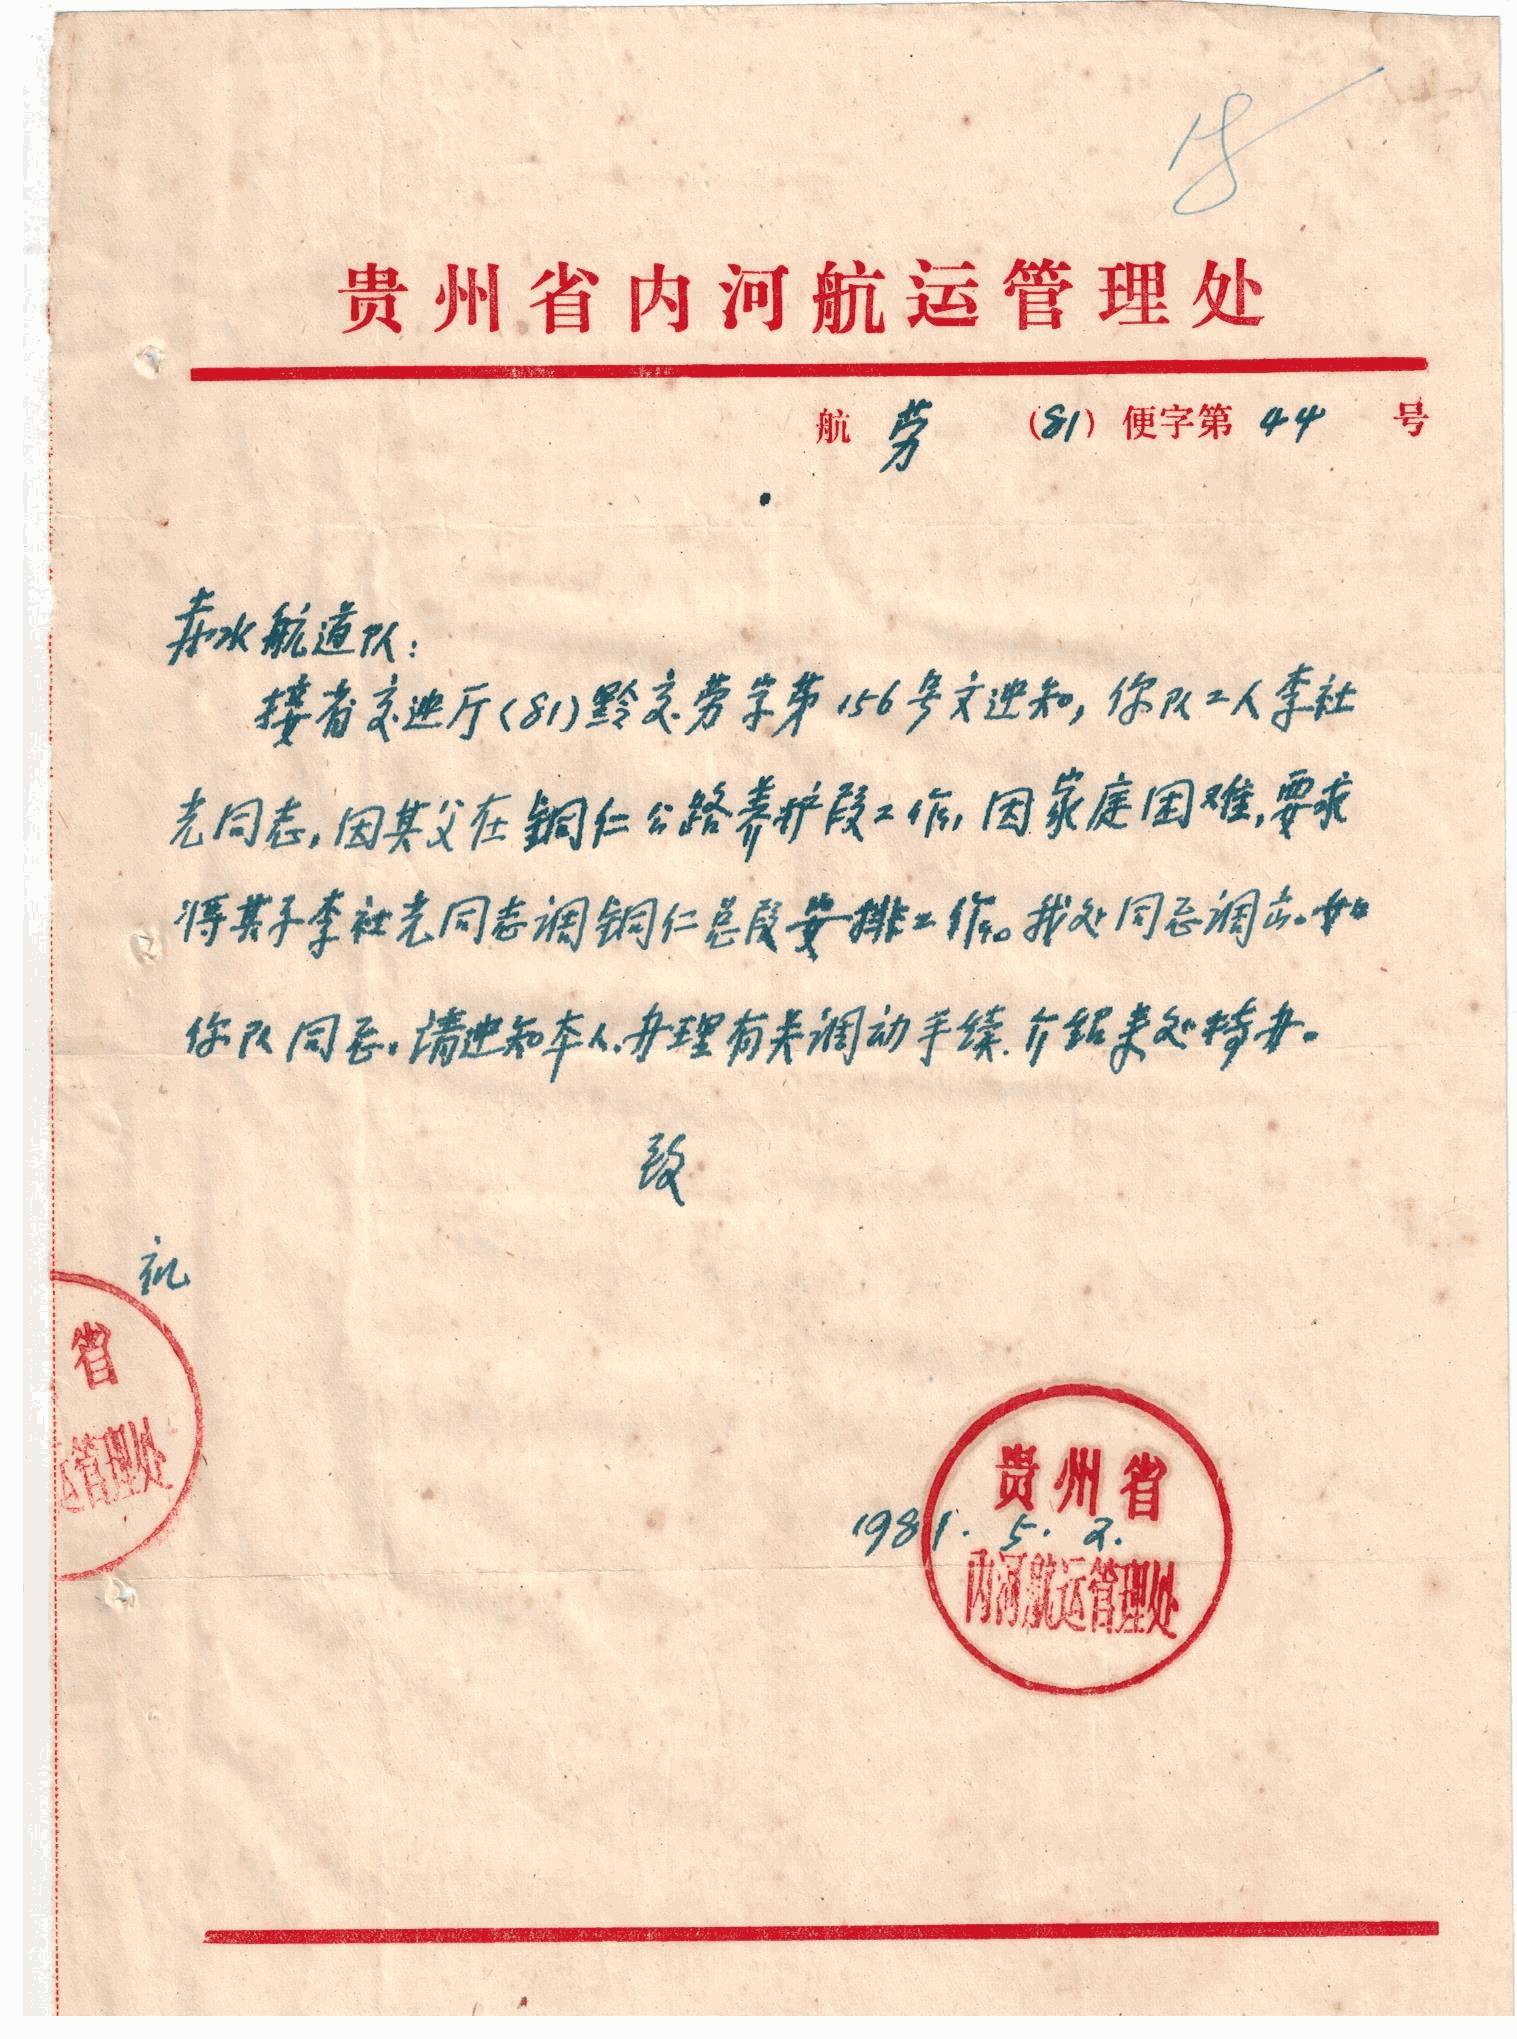 18
贵州省内河航运管理处
航 劳 (81) 便字第 44 号
赤水航道队:
接省交通厅(81)黔交劳字第156号文通知,你队工人李社
光同志,因其父在铜仁公路养护段工作,因家庭困难,要求
将其子李社光同志调铜仁总段安排工作。我处同意调出。如
你队同意,请通知本人、办理有关调动手续、介绍来处转办。
致
礼
省
运管理处
贵州省
1981.5.2.
内河航运管理处